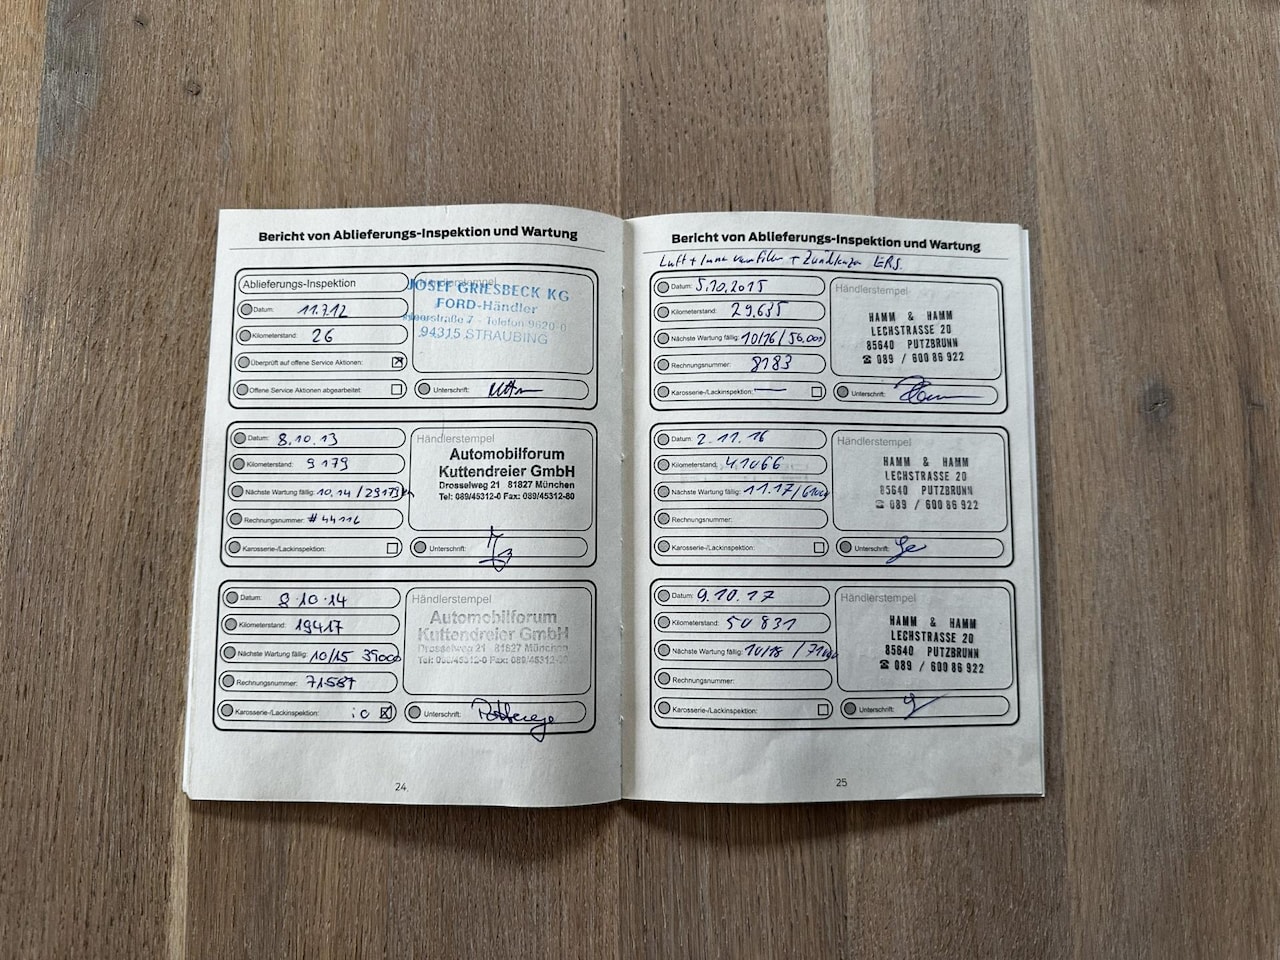 Bericht von Ablieferungs-Inspektion und Wartung
Ablieferungs-Inspektion
Datum: 11.7.12
Kilometerstand: 26
Überprüft auf offene Service Aktionen:
Offene Service Aktionen abgearbeitet:
Händlerstempel
JOSEF GRIESBECK KG
FORD-Händler
7 - Telefon 9620-0
94315 STRAUBING
Unterschrift:
Datum: 8.10.13
Kilometerstand: 9179
Nächste Wartung fällig: 10.14 / 29179 km
Rechnungsnummer: #44116
Karosserie-/Lackinspektion:
Händlerstempel
Automobilforum
Kuttendreier GmbH
Drosselweg 21 81827 München
Tel: 089/45312-0 Fax: 089/45312-80
Unterschrift:
Datum: 8.10.14
Kilometerstand: 19417
Nächste Wartung fällig: 10/15 39000
Rechnungsnummer: 71587
Karosserie-/Lackinspektion: io
Händlerstempel
Automobilforum
Kuttendreier GmbH
Drosselweg 21 81827 München
Tel: 089/45312-0 Fax: 089/45312-80
Unterschrift:
24
Bericht von Ablieferungs-Inspektion und Wartung
Luft + Innenraumfilter + Zündkerzen ERS.
Datum: 5.10.2015
Kilometerstand: 29.635
Nächste Wartung fällig: 10/16 / 50.000
Rechnungsnummer: 8183
Karosserie-/Lackinspektion: —
Händlerstempel
HAMM & HAMM
LECHSTRASSE 20
85640 PUTZBRUNN
☎ 089 / 600 86 922
Unterschrift:
Datum: 2.11.16
Kilometerstand: 41066
Nächste Wartung fällig: 11.17 / 61000
Rechnungsnummer:
Karosserie-/Lackinspektion:
Händlerstempel
HAMM & HAMM
LECHSTRASSE 20
85640 PUTZBRUNN
☎ 089 / 600 86 922
Unterschrift:
Datum: 9.10.17
Kilometerstand: 50831
Nächste Wartung fällig: 10/18 / 71000
Rechnungsnummer:
Karosserie-/Lackinspektion:
Händlerstempel
HAMM & HAMM
LECHSTRASSE 20
85640 PUTZBRUNN
☎ 089 / 600 86 922
Unterschrift:
25